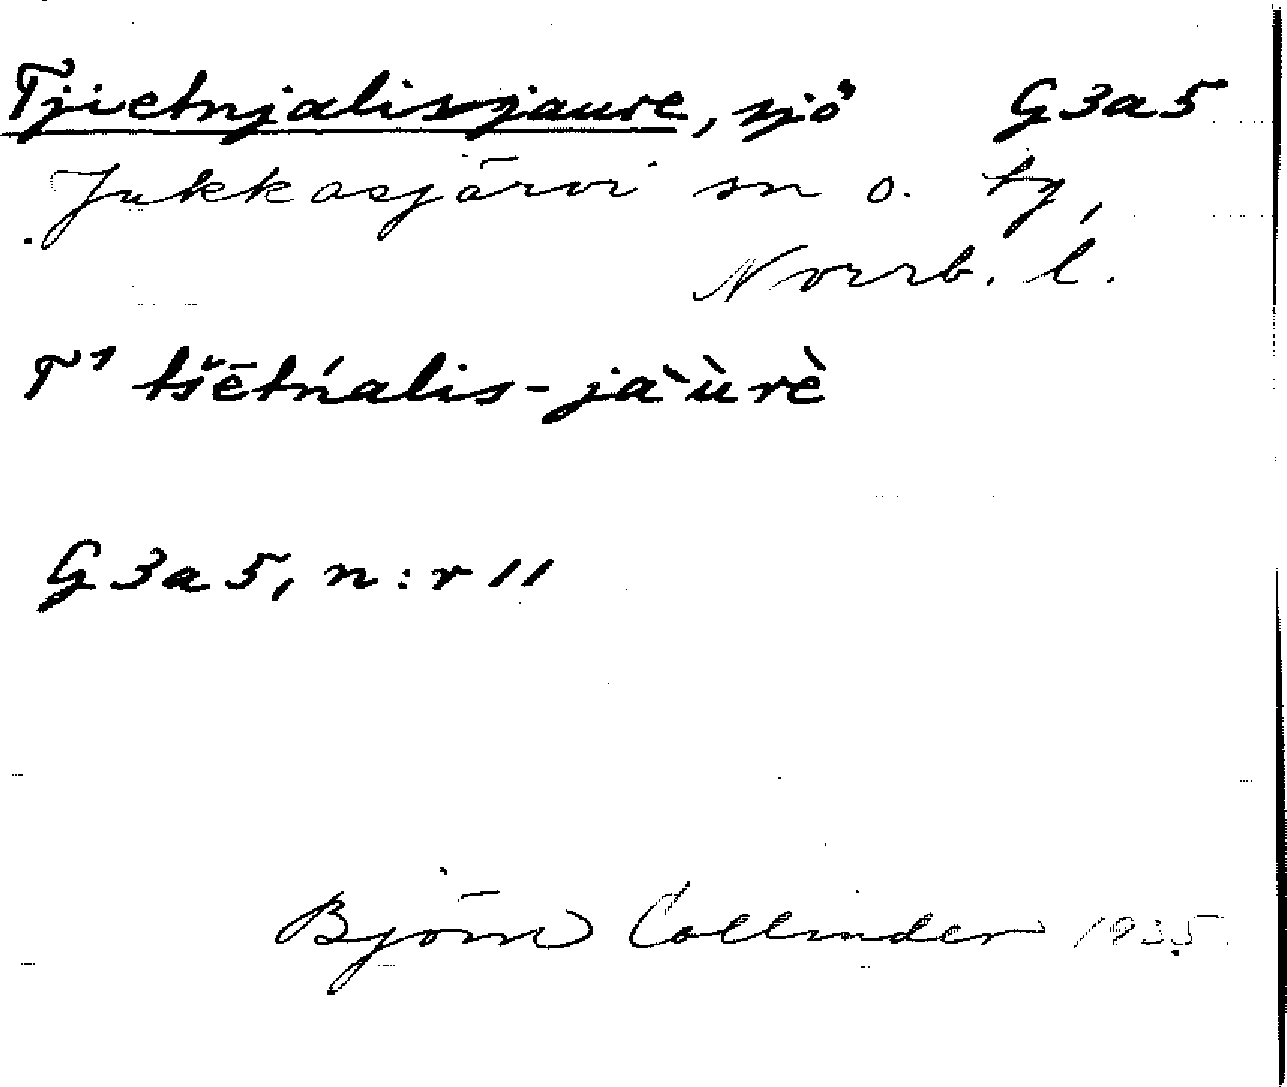 Tjietnjalisjaure, sjö G3a5
Jukkasjärvi sn o. tg,
Norrb. l.
T¹ tšētńalis-jaùrè
G3a5, n:r 11
Björn Collinder 1935